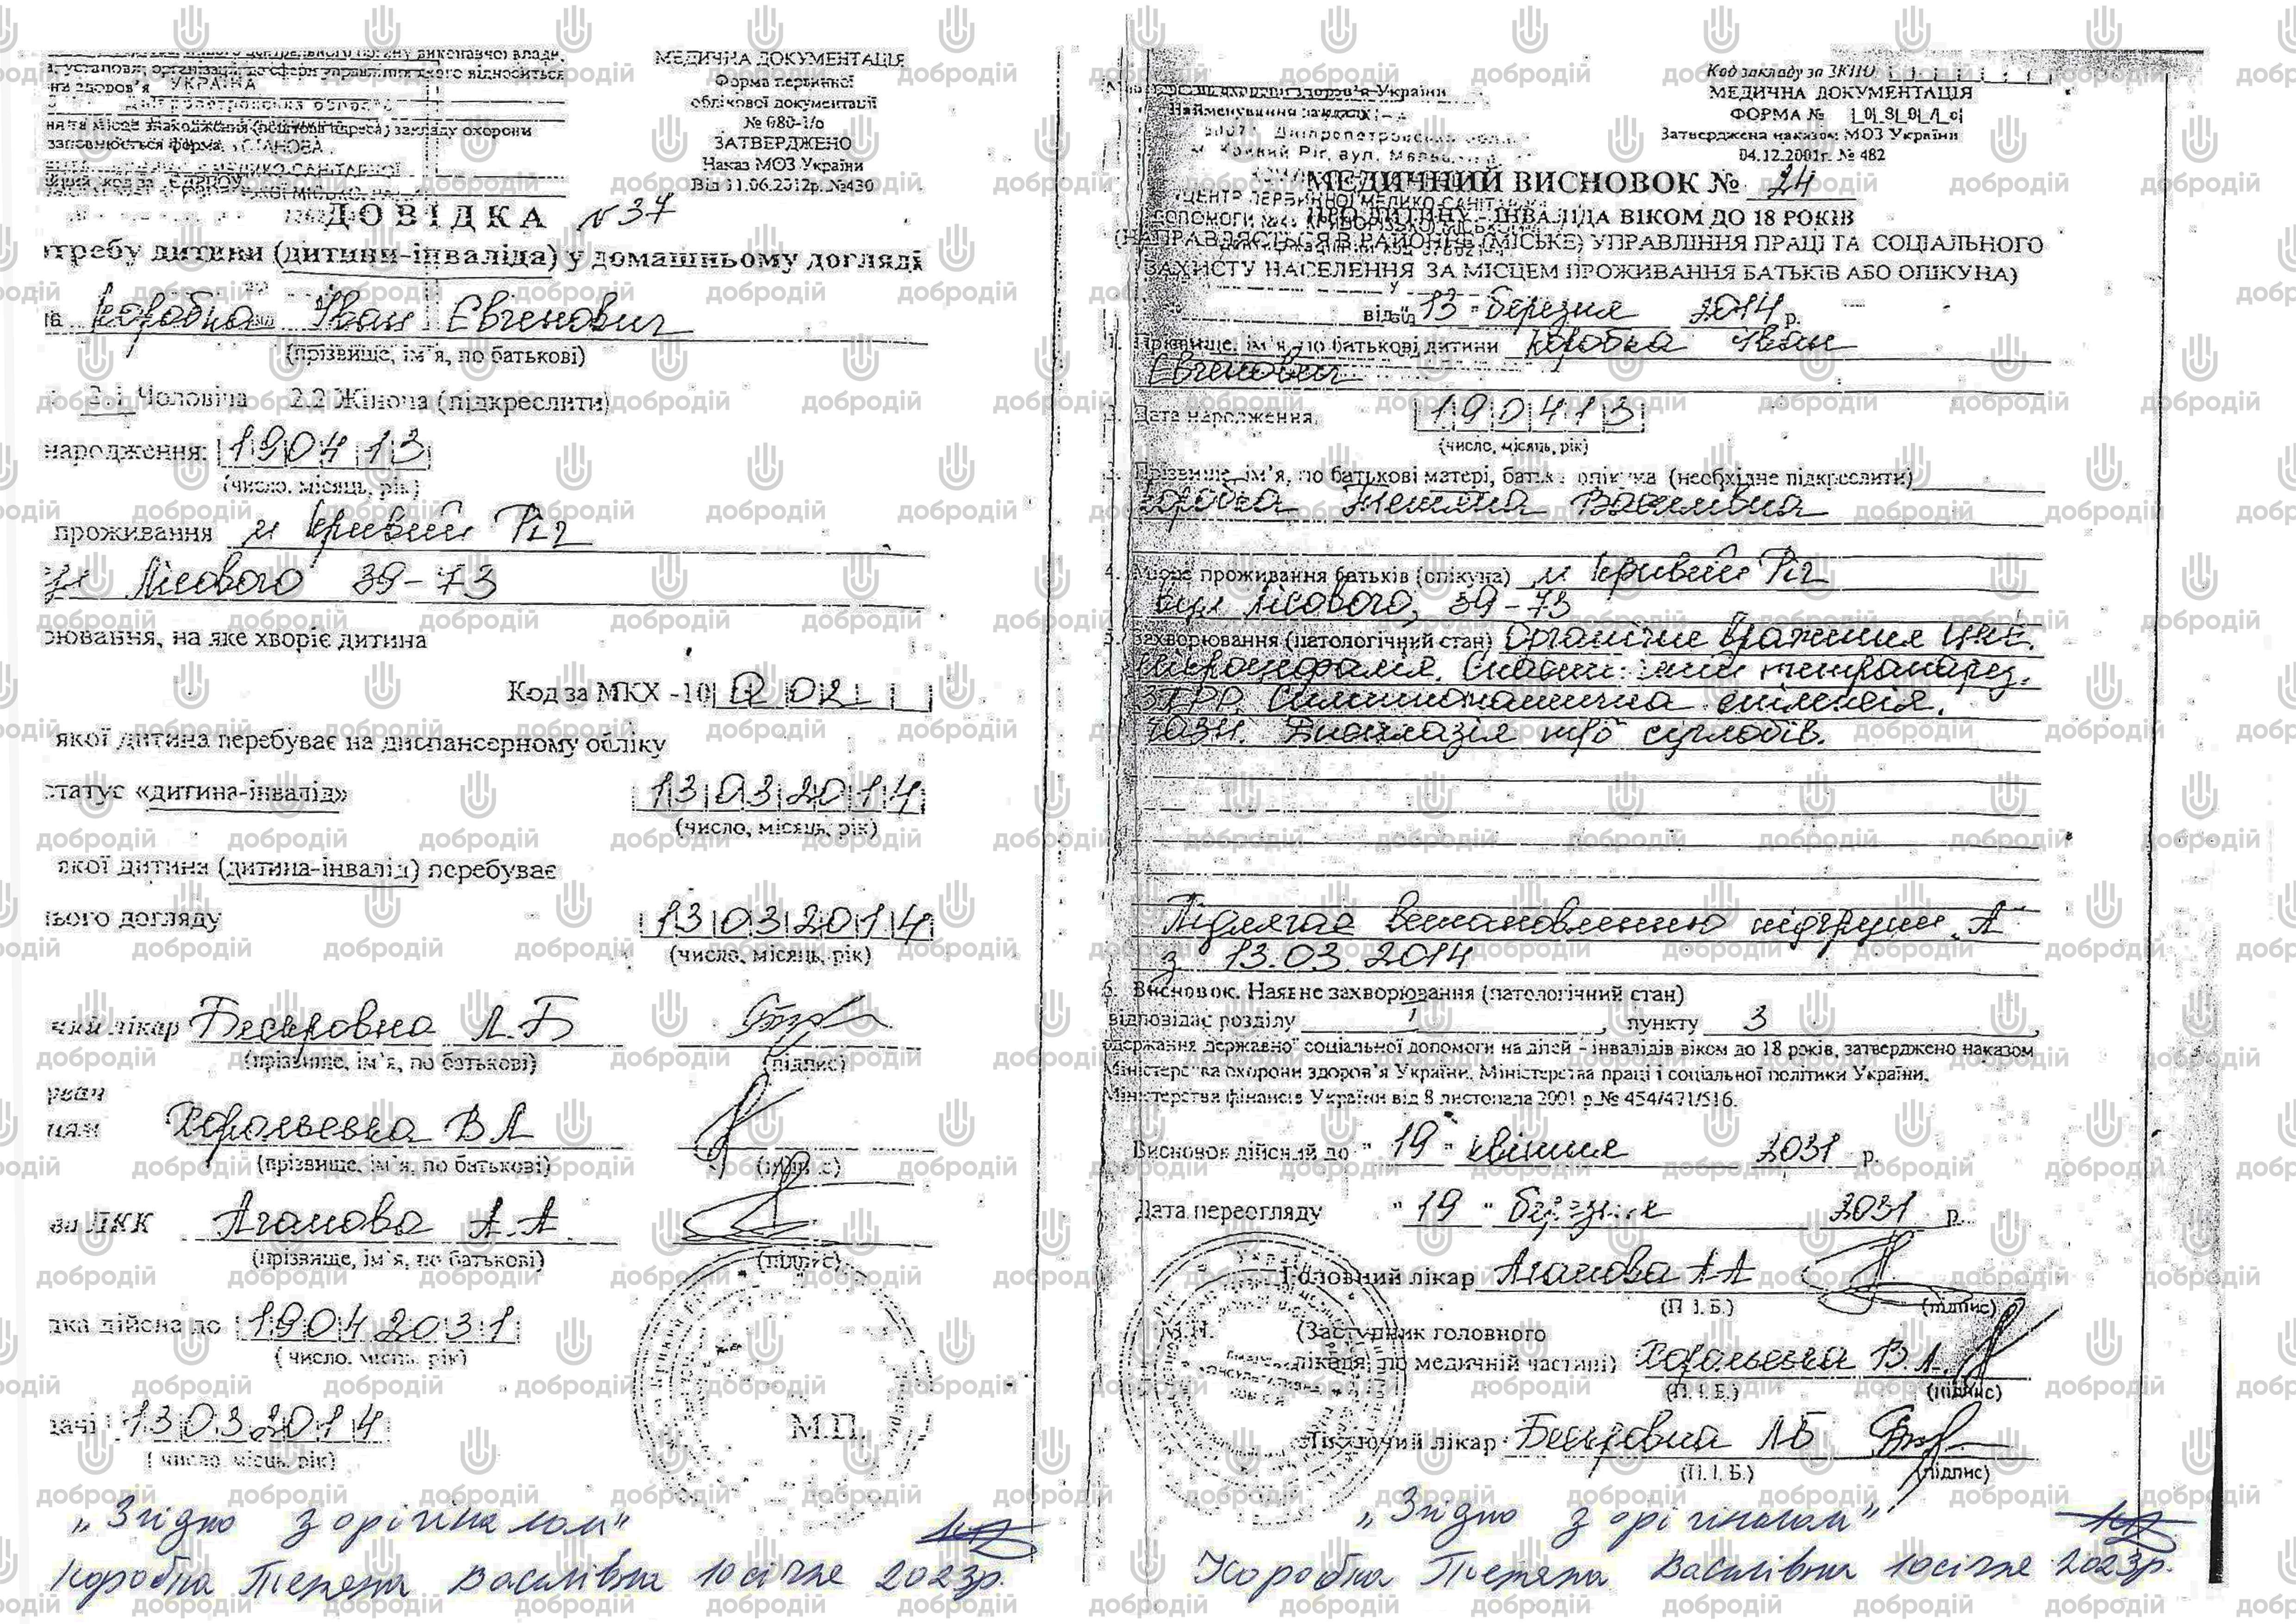 МЕДИЧНА ДОКУМЕНТАЦІЯ
Форма первинної
облікової документації
№ 080-1/о
ЗАТВЕРДЖЕНО
Наказ МОЗ України
Від 11.06.2012р. №430
установи, організації, до сфери управління якого відноситься
ни здоров'я УКРАЇНА
Дніпропетровська область
ня та місце знаходження (поштова адреса) закладу охорони
заповнюється форма,
МЕДИКО-САНІТАРНОЇ
код за ЄДРПОУ
ДОВІДКА №37
требу дитини (дитини-інваліда) у домашньому догляді
Коробка Іван Євгенович
(прізвище, ім'я, по батькові)
2.1 Чоловіча 2.2 Жіноча (підкреслити)
народження: 190413
(число, місяць, рік)
проживання м Кривий Ріг
Лісового 39-73
рювання, на яке хворіє дитина
Код за МКХ -10 Q 02
якої дитина перебуває на диспансерному обліку
статус «дитина-інвалід» 13032014
(число, місяць, рік)
якої дитина (дитина-інвалід) перебуває
нього догляду 13032014
(число, місяць, рік)
чий лікар Бескровна Л.Б
(прізвище, ім'я, по батькові) (підпис)
В Л
(прізвище, ім'я, по батькові) (підпис)
ва ЛКК Агамова А.А
(прізвище, ім'я, по батькові) (підпис)
дка дійсна до 19042031
(число, місяць, рік)
дачі 13032014
(число, місяць, рік)
М.П.
„Згідно з орігіналом"
Коробка Тетяна Василівна 10 січне 2023р.
Код закладу за ЗКПО
МЕДИЧНА ДОКУМЕНТАЦІЯ
ФОРМА №
Затверджена наказом МОЗ України
04.12.2001г. № 482
охорони здоров'я України
Найменування закладу
Дніпропетровська
м. Кривий Ріг, вул.
ЦЕНТР ПЕРВИННОЇ МЕДИКО-САНІТАРНОЇ
ДОПОМОГИ
МЕДИЧНИЙ ВИСНОВОК № 24
ПРО ДИТИНУ - ІНВАЛІДА ВІКОМ ДО 18 РОКІВ
(НАПРАВЛЯЄТЬСЯ В РАЙОННЕ (МІСЬКЕ) УПРАВЛІННЯ ПРАЦІ ТА СОЦІАЛЬНОГО
ЗАХИСТУ НАСЕЛЕННЯ ЗА МІСЦЕМ ПРОЖИВАННЯ БАТЬКІВ АБО ОПІКУНА)
від "13" березня 2014 р.
1. Прізвище, ім'я, по батькові дитини Коробка Іван
Євгенович
2. Дата народження, 190413
(число, місяць, рік)
3. Прізвище, ім'я, по батькові матері, батька, опікуна (необхідне підкреслити)
Коробка Тетяна Василівна
4. Місце проживання батьків (опікуна) м Кривий Ріг
вул Лісового, 39-73
5. Захворювання (патологічний стан) Органічне враження ЦНС.
Мікроцефалія. тетрапарез.
ЗПРР. Симптоматична епілепсія.
ЧАЗН. Дисплазія т/б суглобів.
Підлягає встановленню підгрупи „А
з 13.03.2014
6. Висновок. Наявне захворювання (патологічний стан)
відповідає розділу I, пункту 3,
одержання державної соціальної допомоги на дітей - інвалідів віком до 18 років, затверджено наказом
Міністерства охорони здоров'я України, Міністерства праці і соціальної політики України,
Міністерства фінансів України від 8 листопада 2001 р.№ 454/471/516.
Висновок дійсний до "19" квітня 2031 р.
Дата переогляду "19" березня 2031 р.
Головний лікар Агамова А А
(П.І.Б.) (підпис)
М.П. (Заступник головного
лікаря по медичній частині) В.Л.
(П.І.Б.) (підпис)
Лікуючий лікар Бескровна Л Б
(П.І.Б.) (підпис)
„Згідно з орігіналом"
Коробка Тетяна Василівна 10 січне 2023р.
добродій